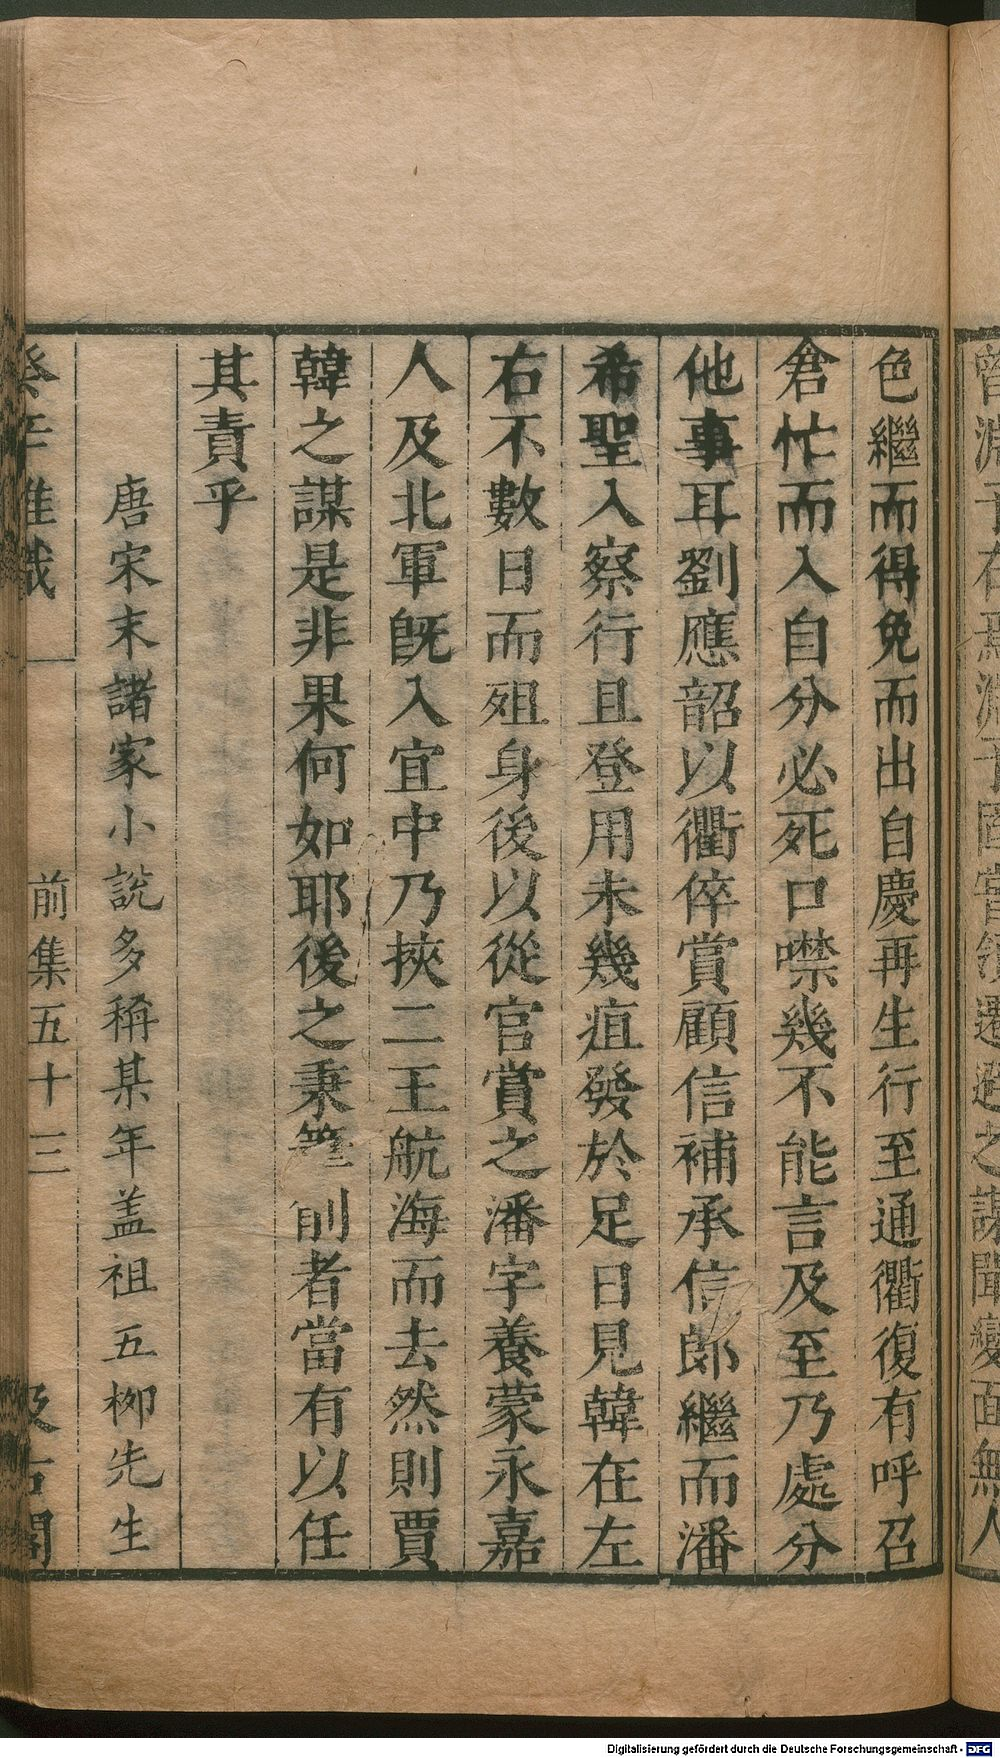 曾淵子在焉淵子固嘗領遷避之謀聞變面無人
色繼而得免而出自慶再生行至通衢復有呼召
倉忙而入自分必死口噤幾不能言及至乃處分
他事耳劉應韶以衢倅賞顧信補承信郎繼而潘
希聖入察行且登用未幾疽發於足日見韓在左
右不數日而殂身後以從官賞之潘字養蒙永嘉
人及北軍旣入宜中乃挾二王航海而去然則賈
韓之謀是非果何如耶後之秉筆削者當有以任
其責乎
唐宋末諸家小說多稱某年盖祖五柳先生
癸辛雜識 前集五十三 汲古閣
Digitalisierung gefördert durch die Deutsche Forschungsgemeinschaft - DFG